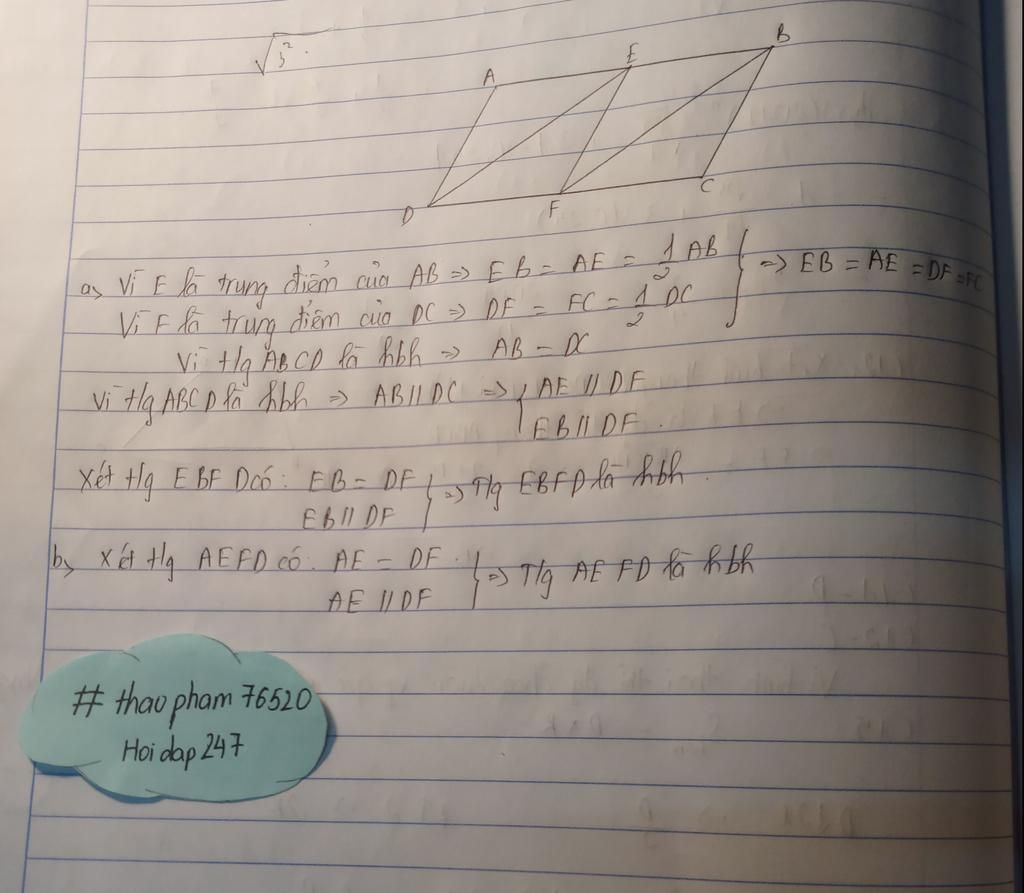 √3².
A E B
D F C
a, Vì E là trung điểm của AB => EB = AE = 1/2 AB } => EB = AE = DF = FC
Vì F là trung điểm của DC => DF = FC = 1/2 DC
Vì t/g ABCD là hbh => AB = DC
Vì t/g ABCD là hbh => AB // DC => { AE // DF
EB // DF.
Xét t/g EBFD có: EB = DF } => T/g EBFD là hbh.
EB // DF
b, Xét t/g AEFD có: AE = DF. } => T/g AEFD là hbh
AE // DF
# thaopham76520
Hoidap247